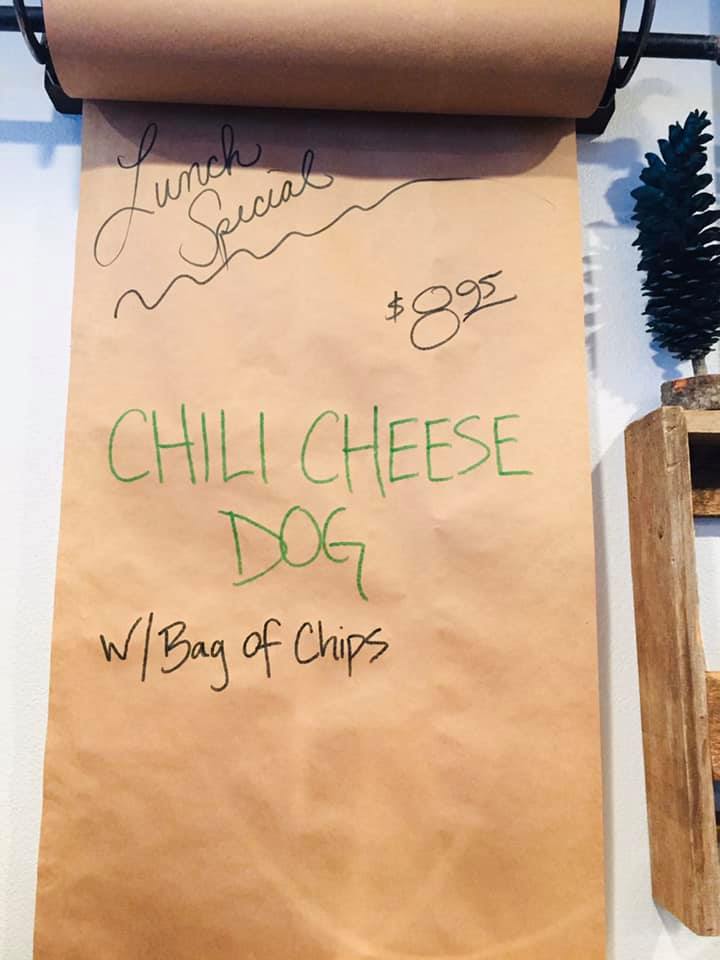 Lunch
Special
$8.95
CHILI CHEESE
DOG
w/Bag of Chips